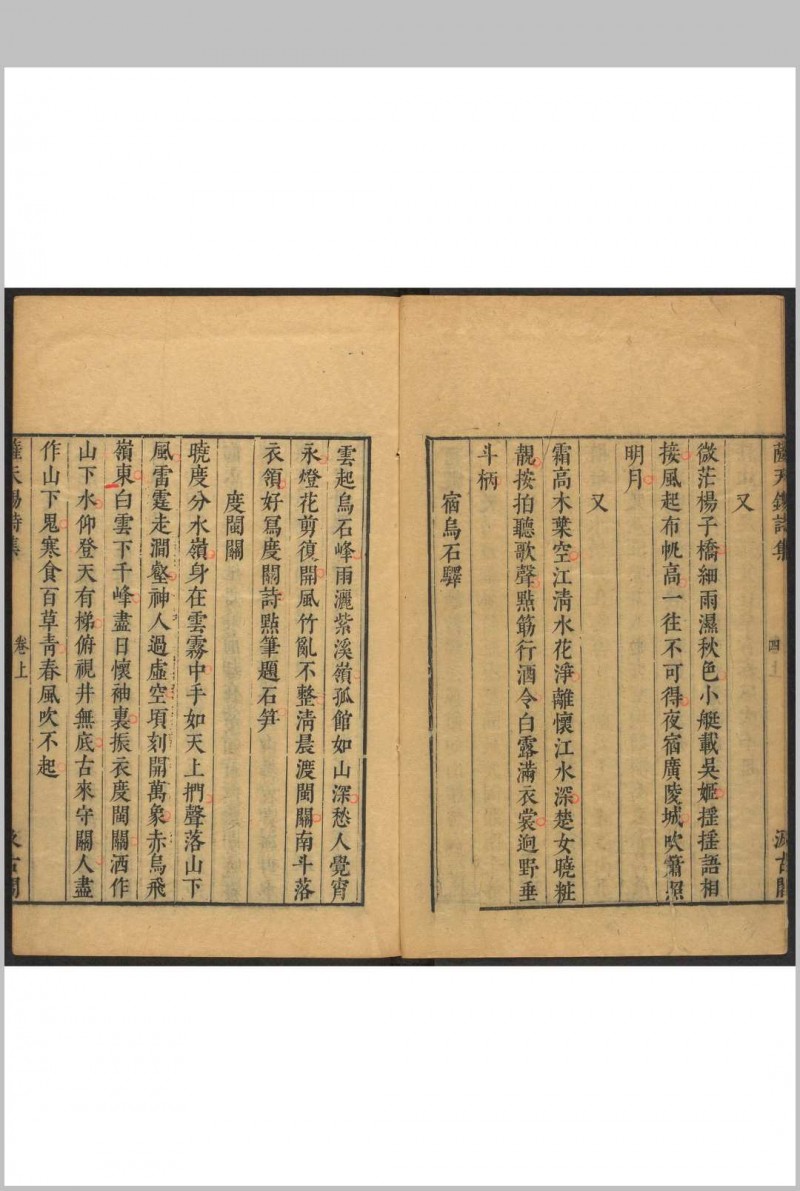 薩天錫詩集
四上
汲古閣
又
微茫楊子橋細雨濕秋色小艇載吳姬揺揺語相
接風起布帆高一往不可得夜宿廣陵城吹簫照
明月
又
霜高木葉空江清水花淨離懷江水深楚女曉粧
靚按拍聽歌聲㸃筯行酒令白露滿衣裳逈野垂
斗柄
宿烏石驛
雲起烏石峰雨灑紫溪嶺孤館如山深愁人覺宵
永燈花剪復開風竹亂不整清晨渡閩關南斗落
衣領好冩度關詩㸃筆題石笋
度閩關
曉度分水嶺身在雲霧中手如天上捫聲落山下
風雷霆走澗壑神人過虛空頃刻開萬象赤烏飛
嶺東白雲下千峰盡日懷袖裏振衣度閩關洒作
山下水仰登天有梯俯視井無底古來守關人盡
作山下鬼寒食百草青春風吹不起
薩天錫詩集
卷上
汲古閣